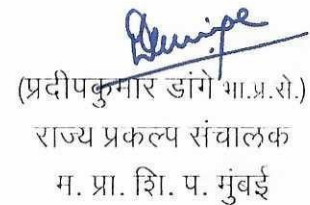 (प्रदीपकुमार डांगे भा.प्र.से.)
राज्य प्रकल्प संचालक
म. प्रा. शि. प. मुंबई